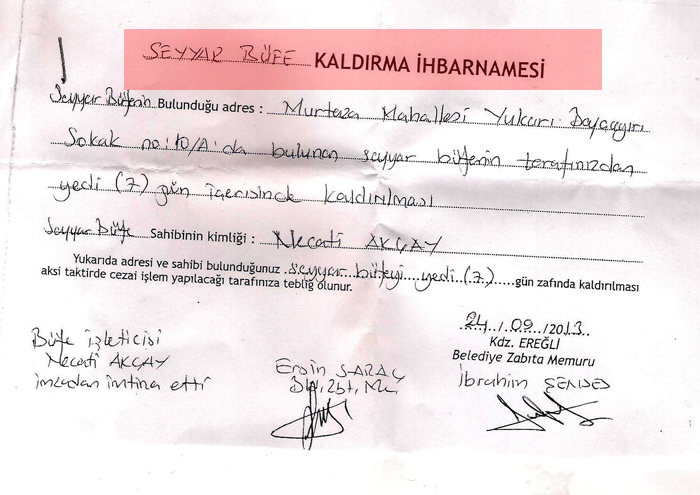 SEYYAR BÜFE KALDIRMA İHBARNAMESİ
Seyyar Büfenin Bulunduğu adres : Murtaza Mahallesi Yukarı
Sokak no:10/A'da bulunan seyyar büfenin tarafınızdan
yedi (7) gün içerisinde kaldırılması
Seyyar Büfe Sahibinin kimliği : Necati AKÇAY
Yukarıda adresi ve sahibi bulunduğunuz seyyar büfeyi yedi (7) gün zafında kaldırılması
aksi taktirde cezai işlem yapılacağı tarafınıza tebliğ olunur.
24/09/2013
Kdz. EREĞLİ
Belediye Zabıta Memuru
İbrahim
Büfe işleticisi
Necati AKÇAY
imzadan imtina etti
Ersin SARAÇ